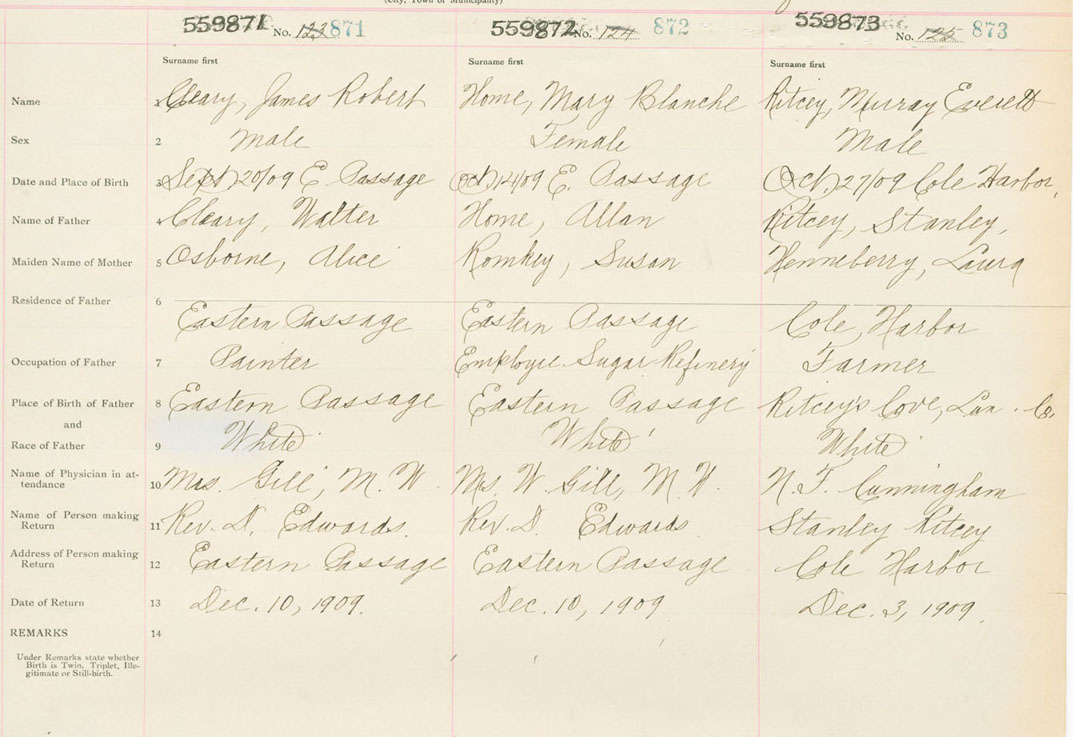 (City, Town or Municipality)
559871 No. 123 871 559872 No. 124 872 559873 No. 125 873
Surname first Surname first Surname first
Name 1 Cleary, James Robert Home, Mary Blanche Ritcey, Murray Everett
Sex 2 Male Female Male
Date and Place of Birth 3 Sept 20/09 E. Passage Oct 14/09 E. Passage Oct 27/09 Cole Harbor,
Name of Father 4 Cleary, Walter Home, Allan Ritcey, Stanley,
Maiden Name of Mother 5 Osborne, Alice Romkey, Susan Henneberry, Laura
Residence of Father 6
Eastern Passage Eastern Passage Cole, Harbor
Occupation of Father 7 Painter Employee Sugar Refinery Farmer
Place of Birth of Father 8 Eastern Passage Eastern Passage Ritcey's Cove, Lun. Co.
and
Race of Father 9 White White White
Name of Physician in at-
tendance 10 Mrs. Gill, M. W. Mrs. W Gill, M. W. N. F. Cunningham
Name of Person making
Return 11 Rev. D. Edwards. Rev. D Edwards Stanley Ritcey
Address of Person making
Return 12 Eastern Passage Eastern Passage Cole Harbor
Date of Return 13 Dec. 10, 1909. Dec. 10, 1909 Dec. 3, 1909.
REMARKS 14
Under Remarks state whether
Birth is Twin, Triplet, Ille-
gitimate or Still-birth.